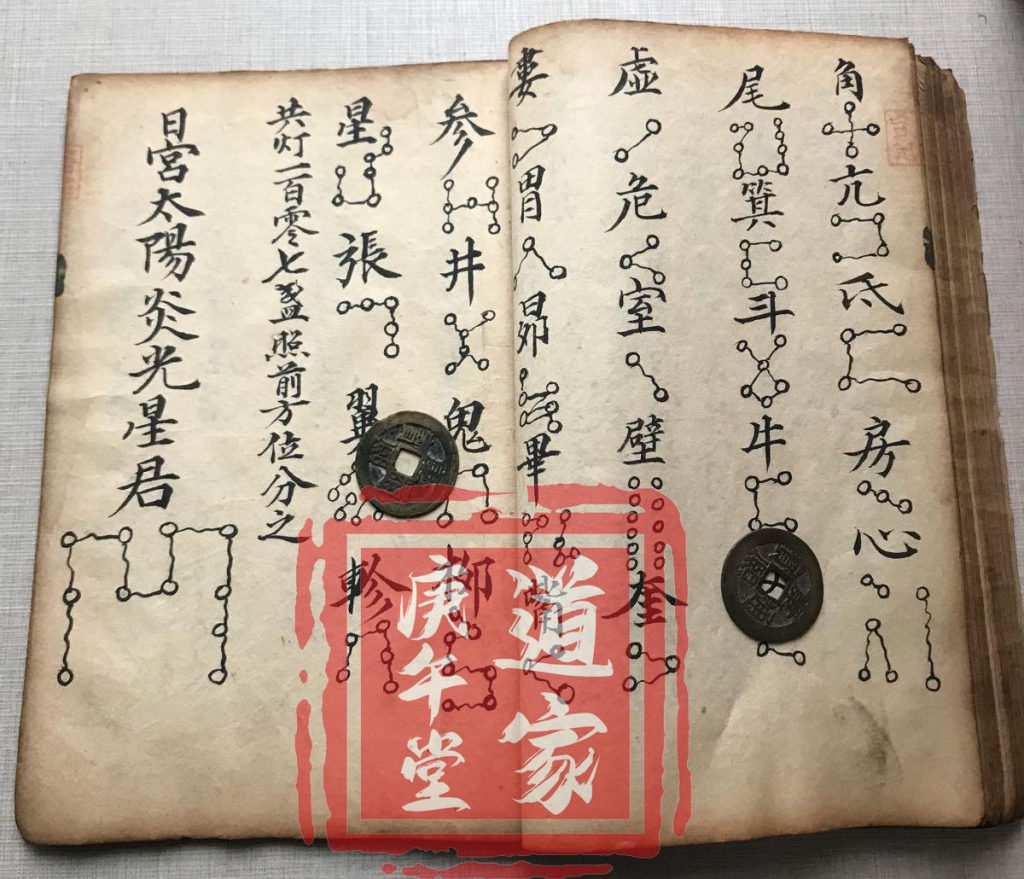 角 亢 氐 房 心
尾 箕 斗 牛
虚 危 室 壁 奎
婁 胃 昴 畢 觜
参 井 鬼 柳
星 張 翼 軫
共灯一百零七盏照前方位分之
日宮太陽炎光星君
道家
庚午堂